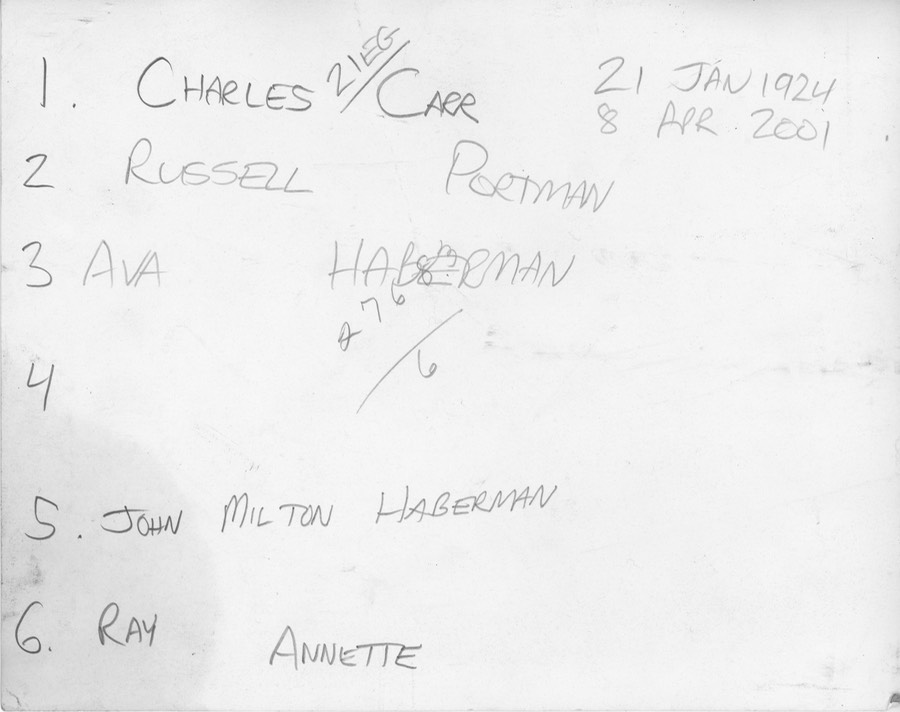 1. CHARLES ZIEG/CARR 21 JAN 1924
8 APR 2001
2 RUSSELL PORTMAN
3 AVA HABERMAN
4
5. JOHN MILTON HABERMAN
6. RAY ANNETTE